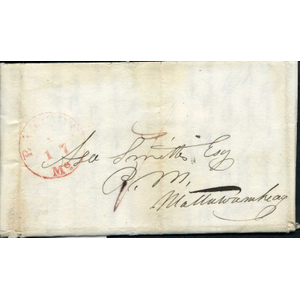 17
Me
Asa Smith Esq
P. M.
Mattawamkeag